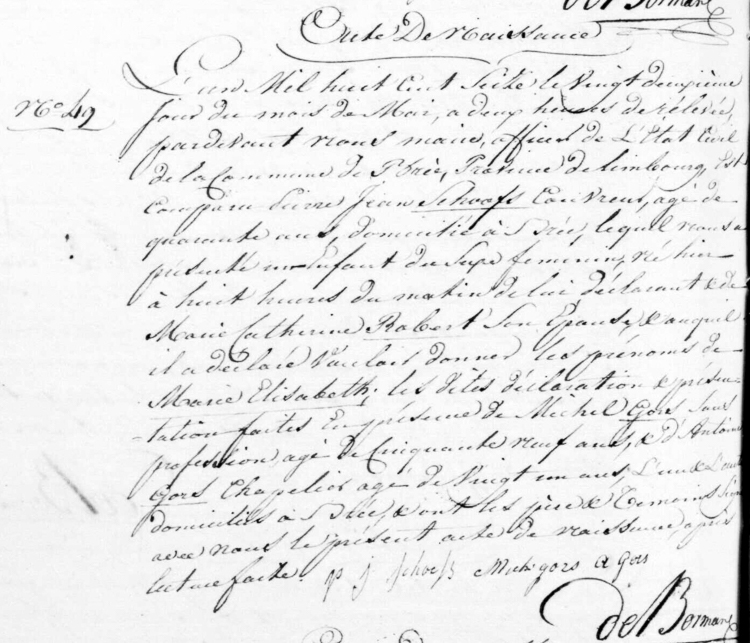 de Borman
Acte De Naissance
No 49
L'an Mil huit cent Seize le vingt deuxième
jour du mois de Mai, a deux heures de rélevée,
pardevant nous maire, officier de L'État Civil
de la Commune de Brée, Province de Limbourg, Est
comparu Pierre Jean Schoofs Couvreur, agé de
quarante ans, domicilié à Brée, lequel nous a
présenté un Enfant du Sexe feminin, né hier
à huit heures du matin de lui déclarant & de
Marie Catherine Robert Son Epouse, & auquel
il a déclaré vouloir donner les prénoms de
Marie Elisabeth; les dites déclaration & présen-
-tation faites En présence de Michel Gors Sans
profession, agé de Cinquante neuf ans, & d'Antoine
Gors Chapelier agé de Vingt un ans, L'un & L'autre
domiciliés a Brée, & ont les père & Temoins Signé
avec nous le présent acte de naissance, après
lecture faite. p j schoofs Mich gors a gors
de Borman